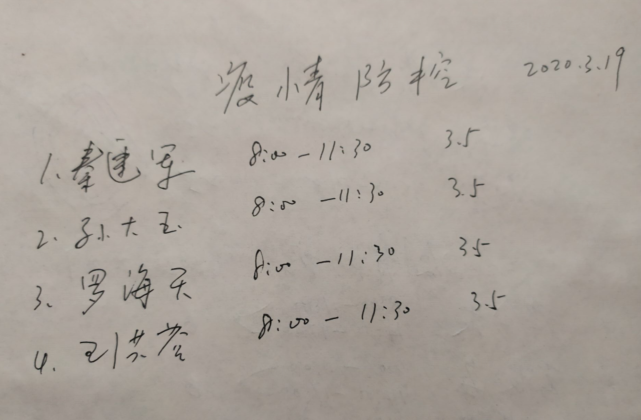 疫情防控 2020.3.19
1. 秦建军 8:00-11:30 3.5
2. 孙大玉 8:00-11:30 3.5
3. 罗海天 8:00-11:30 3.5
4. 王洪 8:00-11:30 3.5